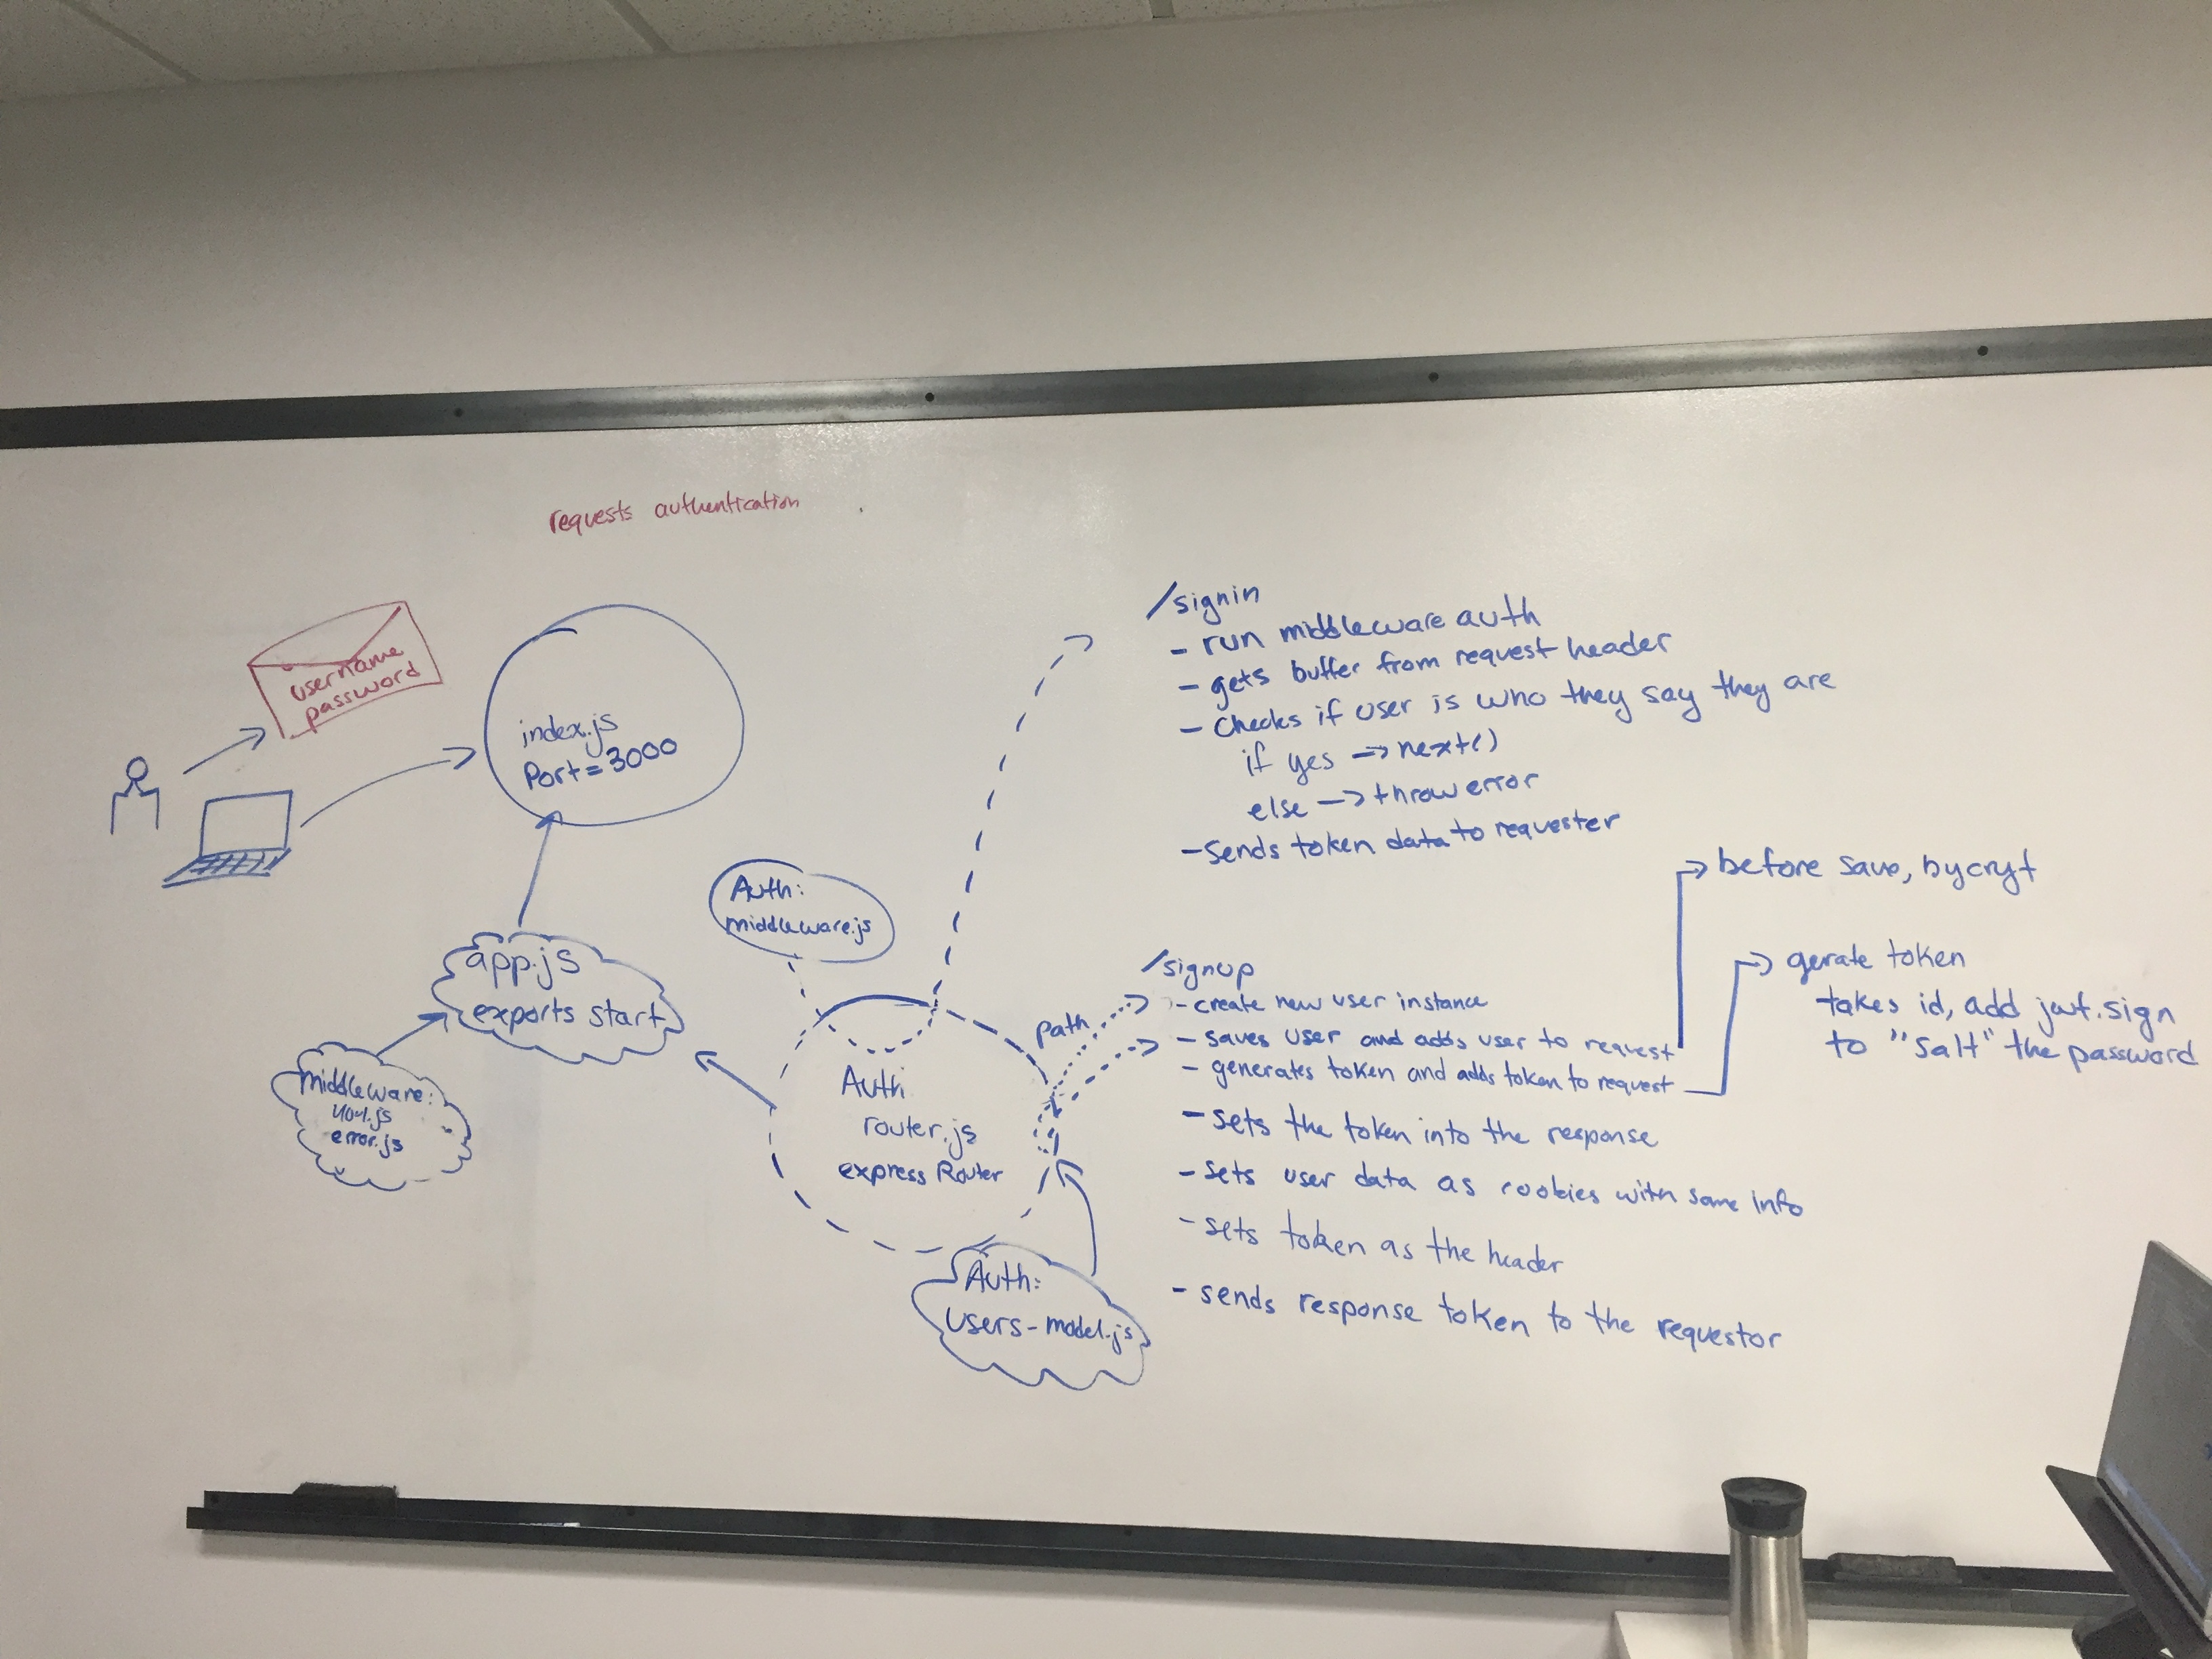 requests authentication
username
password
index.js
Port = 3000
app.js
exports start
middleware:
404.js
error.js
Auth:
middleware.js
Auth
router.js
express Router
Auth:
users-model.js
path
/signin
- run middleware auth
- gets buffer from request header
- checks if user is who they say they are
if yes → next()
else → throw error
- sends token data to requester
/signup
- create new user instance
- saves user and adds user to request
- generates token and adds token to request
- sets the token into the response
- sets user data as cookies with same info
- sets token as the header
- sends response token to the requestor
before save, bycryt
gerate token
takes id, add jwt.sign
to "salt" the password